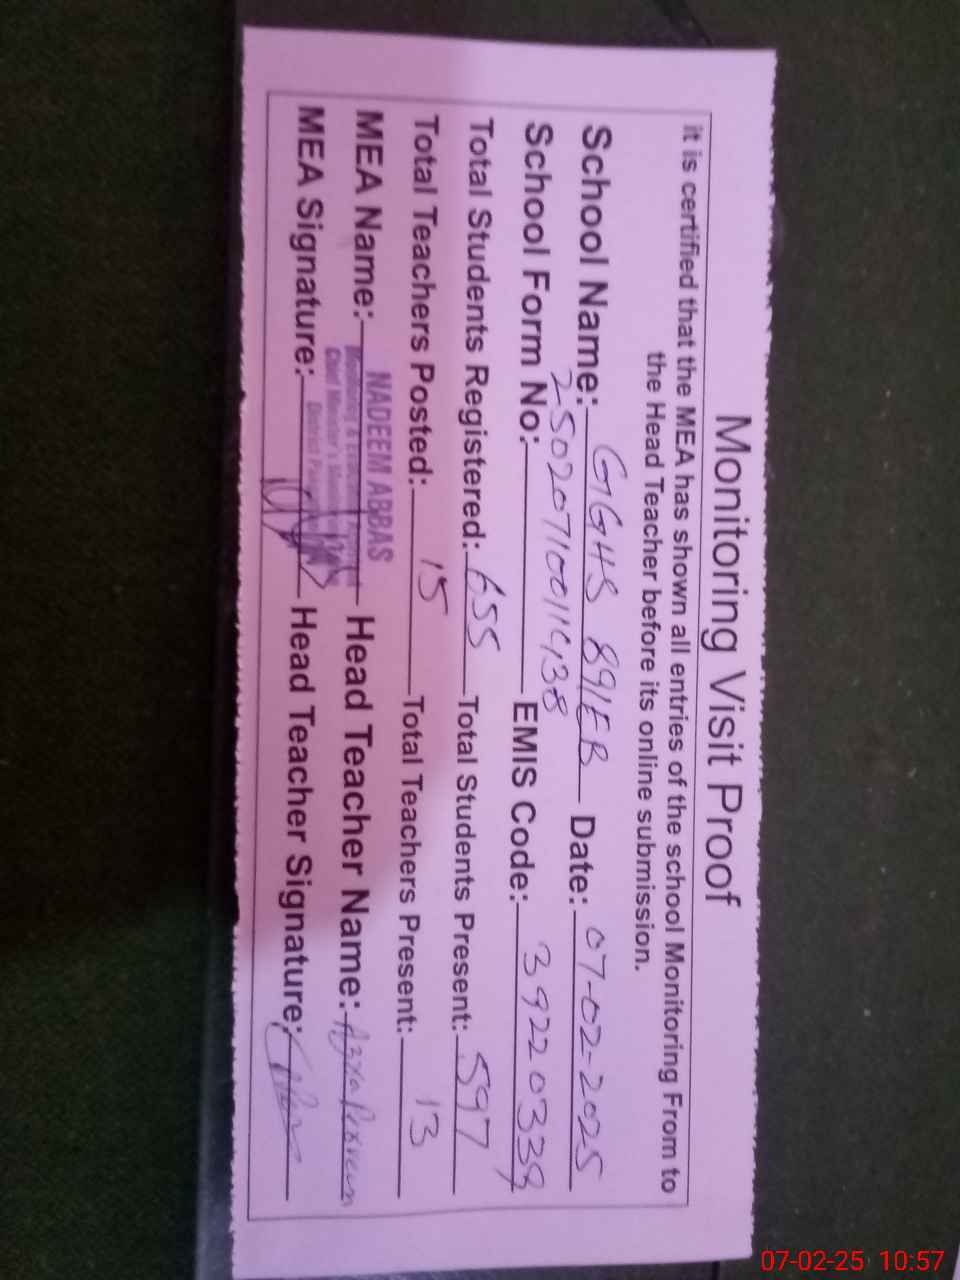 Monitoring Visit Proof
it is certified that the MEA has shown all entries of the school Monitoring From to
the Head Teacher before its online submission.
School Name: GGHS 89/EB Date: 07-02-2025
School Form No: 250207100111438 EMIS Code: 39220339
Total Students Registered: 655 Total Students Present: 597
Total Teachers Posted: 15 Total Teachers Present: 13
MEA Name: NADEEM ABBAS Head Teacher Name: Azra Parveen
Monitoring & Evaluation
Chief Minister's Monitoring
District
MEA Signature: Head Teacher Signature:
07-02-25 10:57